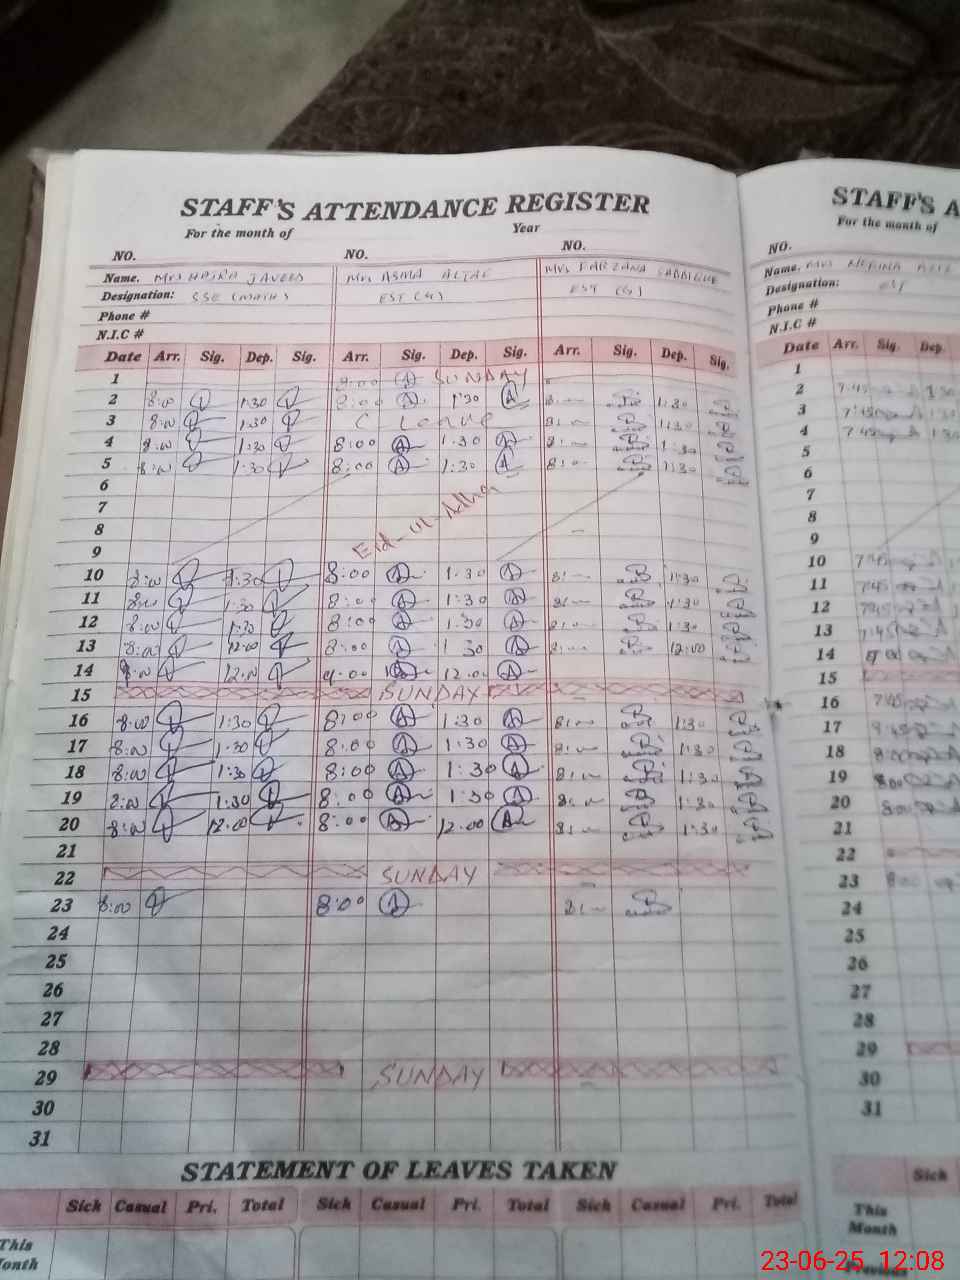 STAFF'S ATTENDANCE REGISTER
For the month of Year
NO. NO. NO.
Name. Mrs HAJRA JAVEED Mrs ASMA ALTAF Mrs FARZANA
Designation: SSE (MATH) EST (G) EST (G)
Phone #
N.I.C #
Date Arr. Sig. Dep. Sig. Arr. Sig. Dep. Sig. Arr. Sig. Dep. Sig.
1 8:00 A SUNDAY
2 8:00 1:30 8:00 A 1:30 A 8:— 1:30
3 8:00 1:30 C Leave 8:— 1:30
4 8:00 1:30 8:00 A 1:30 A 8:— 1:30
5 8:00 1:30 8:00 A 1:30 A 8:— 1:30
6
7
8 Eid-ul-Adha
9
10 8:00 1:30 8:00 A 1:30 A 8:— 1:30
11 8:00 1:30 8:00 A 1:30 A 8:— 1:30
12 8:00 1:30 8:00 A 1:30 A 8:— 1:30
13 8:00 12:00 8:00 A 1:30 A 8:— 12:00
14 12:00 A 12:00 A
15 SUNDAY
16 8:00 1:30 8:00 A 1:30 A 8:— 1:30
17 8:00 1:30 8:00 A 1:30 A 8:— 1:30
18 8:00 1:30 8:00 A 1:30 A 8:— 1:30
19 8:00 1:30 8:00 A 1:30 A 8:— 1:30
20 8:00 12:00 8:00 A 12:00 A 8:— 1:30
21
22 SUNDAY
23 8:00 8:00 A 8:—
24
25
26
27
28
29 SUNDAY
30
31
STATEMENT OF LEAVES TAKEN
Sick Casual Pri. Total Sick Casual Pri. Total Sick Casual Pri. Total
This
Month
STAFF'S A
For the month of
NO.
Name. Mrs
Designation: EST
Phone #
N.I.C #
Date Arr. Sig. Dep.
1
2 7:45 1:30
3 7:45 1:30
4 7:45 1:30
5
6
7
8
9
10 7:45
11 7:45
12 7:45
13 7:45
14
15
16 7:45
17
18 8:00
19 8:00
20 8:00
21
22
23 8:00
24
25
26
27
28
29
30
31
Sick
This
Month
Previous
23-06-25 12:08